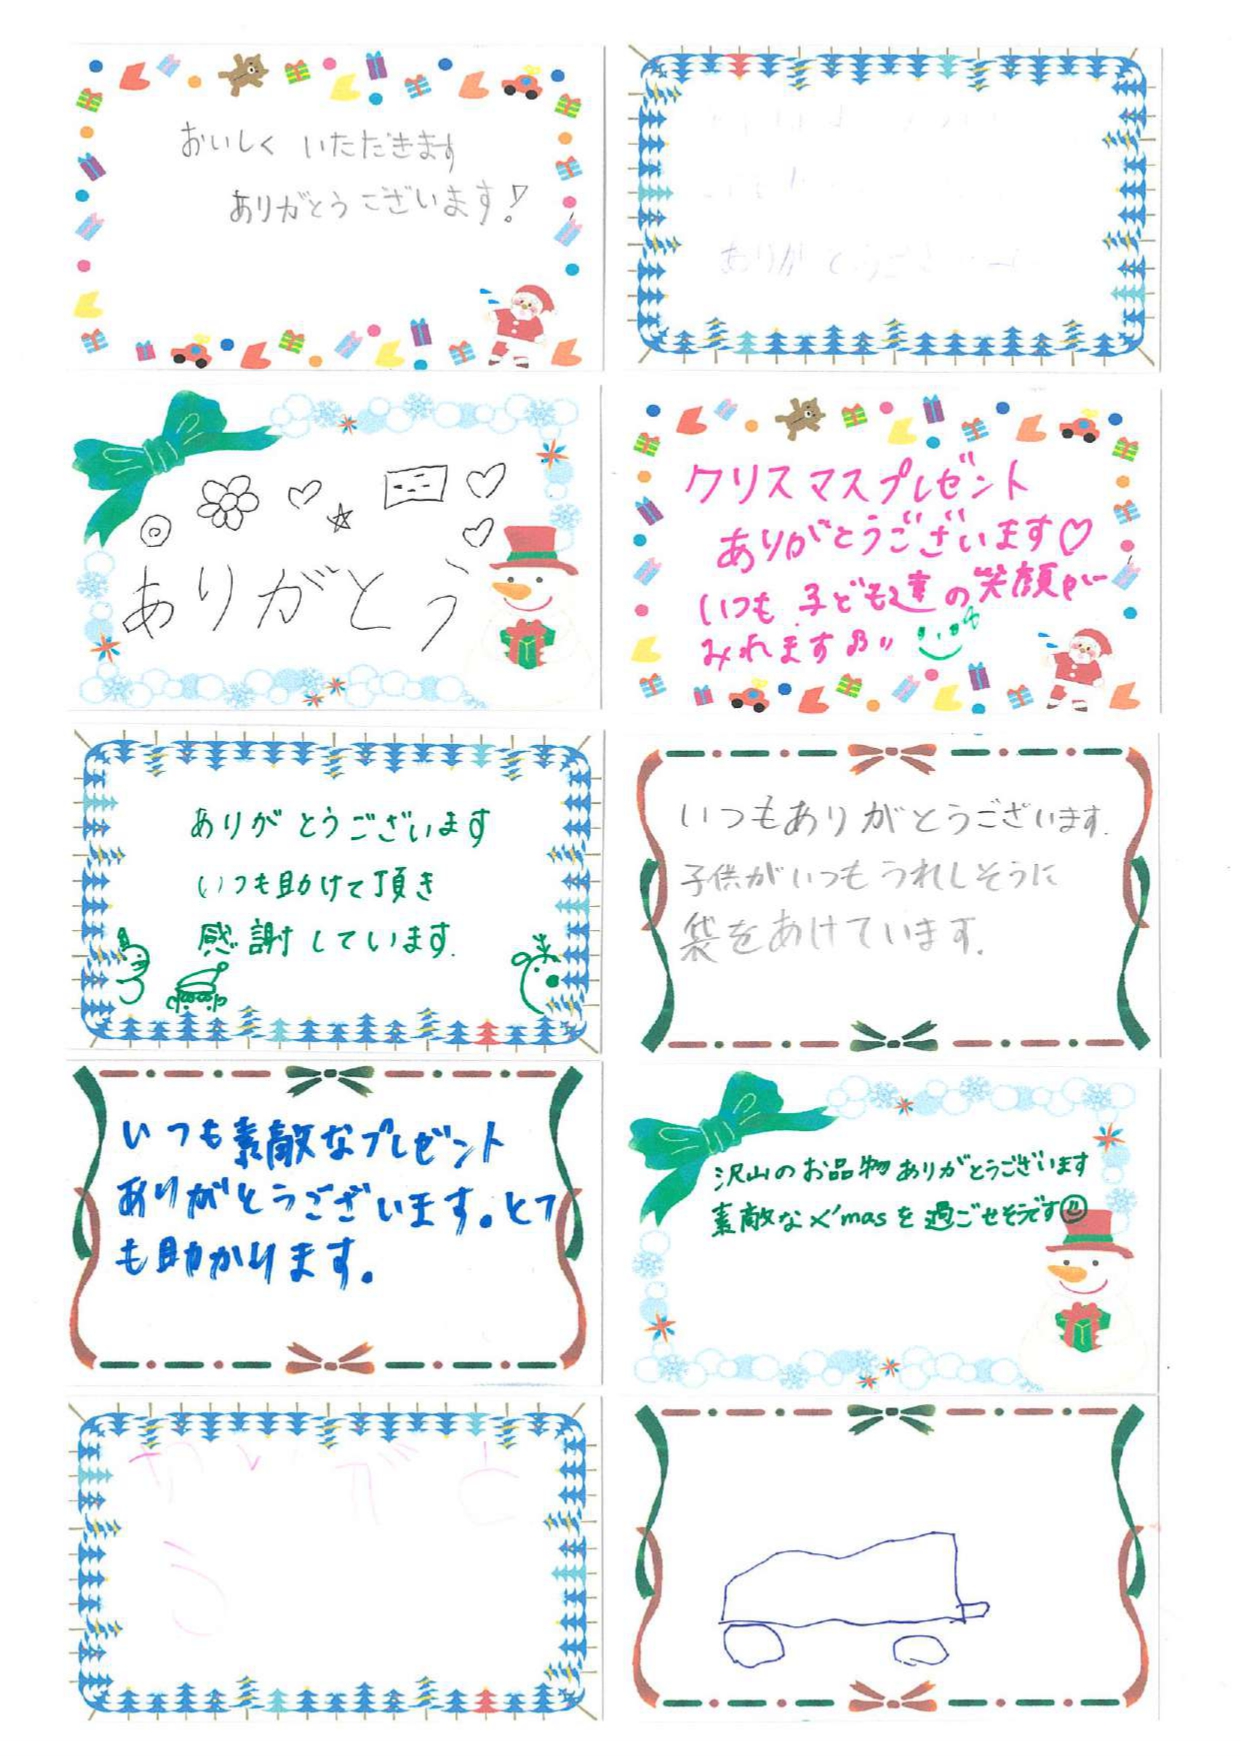 おいしく いただきます
ありがとうございます!
ありがとうござい
ありがとう
クリスマスプレゼント
ありがとうございます♡
いつも 子ども達の笑顔が
みれます♪
ありがとうございます
いつも助けて頂き
感謝しています.
いつもありがとうございます.
子供がいつもうれしそうに
袋をあけています.
いつも素敵なプレゼント
ありがとうございます。とて
も助かります。
沢山のお品物ありがとうございます
素敵なX'masを過ごせそうです
ありがと
う